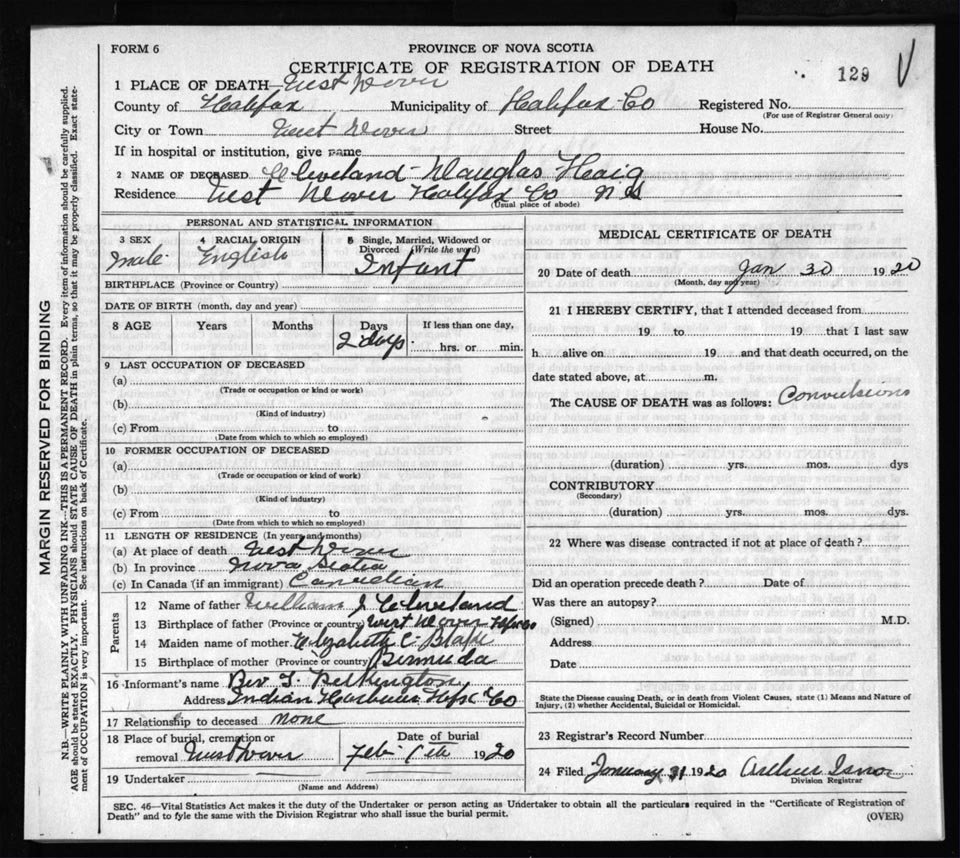 FORM 6
PROVINCE OF NOVA SCOTIA
CERTIFICATE OF REGISTRATION OF DEATH
129
1 PLACE OF DEATH West Dover
County of Halifax Municipality of Halifax Co Registered No.
(For use of Registrar General only)
City or Town West Dover Street House No.
If in hospital or institution, give name
2 NAME OF DECEASED Cleveland - Dauglas Haig
Residence West Dover Halifax Co N.S
(Usual place of abode)
PERSONAL AND STATISTICAL INFORMATION
3 SEX Male
4 RACIAL ORIGIN English
5 Single, Married, Widowed or Divorced (Write the word) Infant
BIRTHPLACE (Province or Country)
DATE OF BIRTH (month, day and year)
8 AGE Years Months Days 2 days If less than one day, hrs. or min.
9 LAST OCCUPATION OF DECEASED
(a)
(Trade or occupation or kind or work)
(b)
(Kind of industry)
(c) From to
(Date from which to which so employed)
10 FORMER OCCUPATION OF DECEASED
(a)
(Trade or occupation or kind of work)
(b)
(Kind of industry)
(c) From to
(Date from which to which so employed)
11 LENGTH OF RESIDENCE (In years and months)
(a) At place of death West Dover
(b) In province Nova Scotia
(c) In Canada (if an immigrant) Canadian
Parents
12 Name of father William J Cleveland
13 Birthplace of father (Province or country) West Dover Hfx Co
14 Maiden name of mother Elizabeth C
15 Birthplace of mother (Province or country) Bermuda
16 Informant's name Rev
Address Indian Harbour Hfx Co
17 Relationship to deceased none
18 Place of burial, cremation or removal West Dover Date of burial Feb 1920
19 Undertaker
(Name and Address)
MEDICAL CERTIFICATE OF DEATH
20 Date of death Jan 30 1920
(Month, day and year)
21 I HEREBY CERTIFY, that I attended deceased from
19 to 19 that I last saw
h alive on 19 and that death occurred, on the
date stated above, at m.
The CAUSE OF DEATH was as follows: Convulsions
(duration) yrs. mos. dys
CONTRIBUTORY
(Secondary)
(duration) yrs. mos. dys.
22 Where was disease contracted if not at place of death?
Did an operation precede death? Date of
Was there an autopsy?
(Signed) M.D.
Address
Date
State the Disease causing Death, or in death from Violent Causes, state (1) Means and Nature of
Injury, (2) whether Accidental, Suicidal or Homicidal.
23 Registrar's Record Number
24 Filed January 31 1920 Arthur Isnor
Division Registrar
SEC. 46—Vital Statistics Act makes it the duty of the Undertaker or person acting as Undertaker to obtain all the particulars required in the "Certificate of Registration of
Death" and to fyle the same with the Division Registrar who shall issue the burial permit.
(OVER)
MARGIN RESERVED FOR BINDING
N.B.—WRITE PLAINLY WITH UNFADING INK—THIS IS A PERMANENT RECORD. Every item of information should be carefully supplied.
AGE should be stated EXACTLY. PHYSICIANS should STATE CAUSE OF DEATH in plain terms, so that it may be properly classified. Exact state-
ment of OCCUPATION is very important. See instructions on back of Certificate.